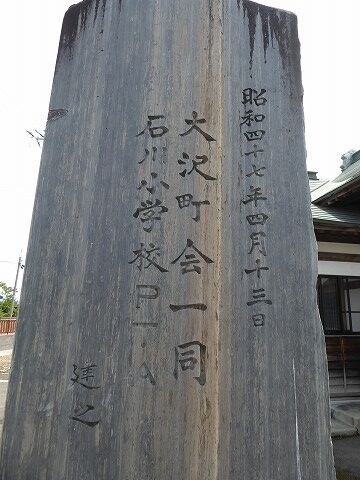 昭和四十七年四月十三日
大沢町会一同
石川小学校P.T.A
建之